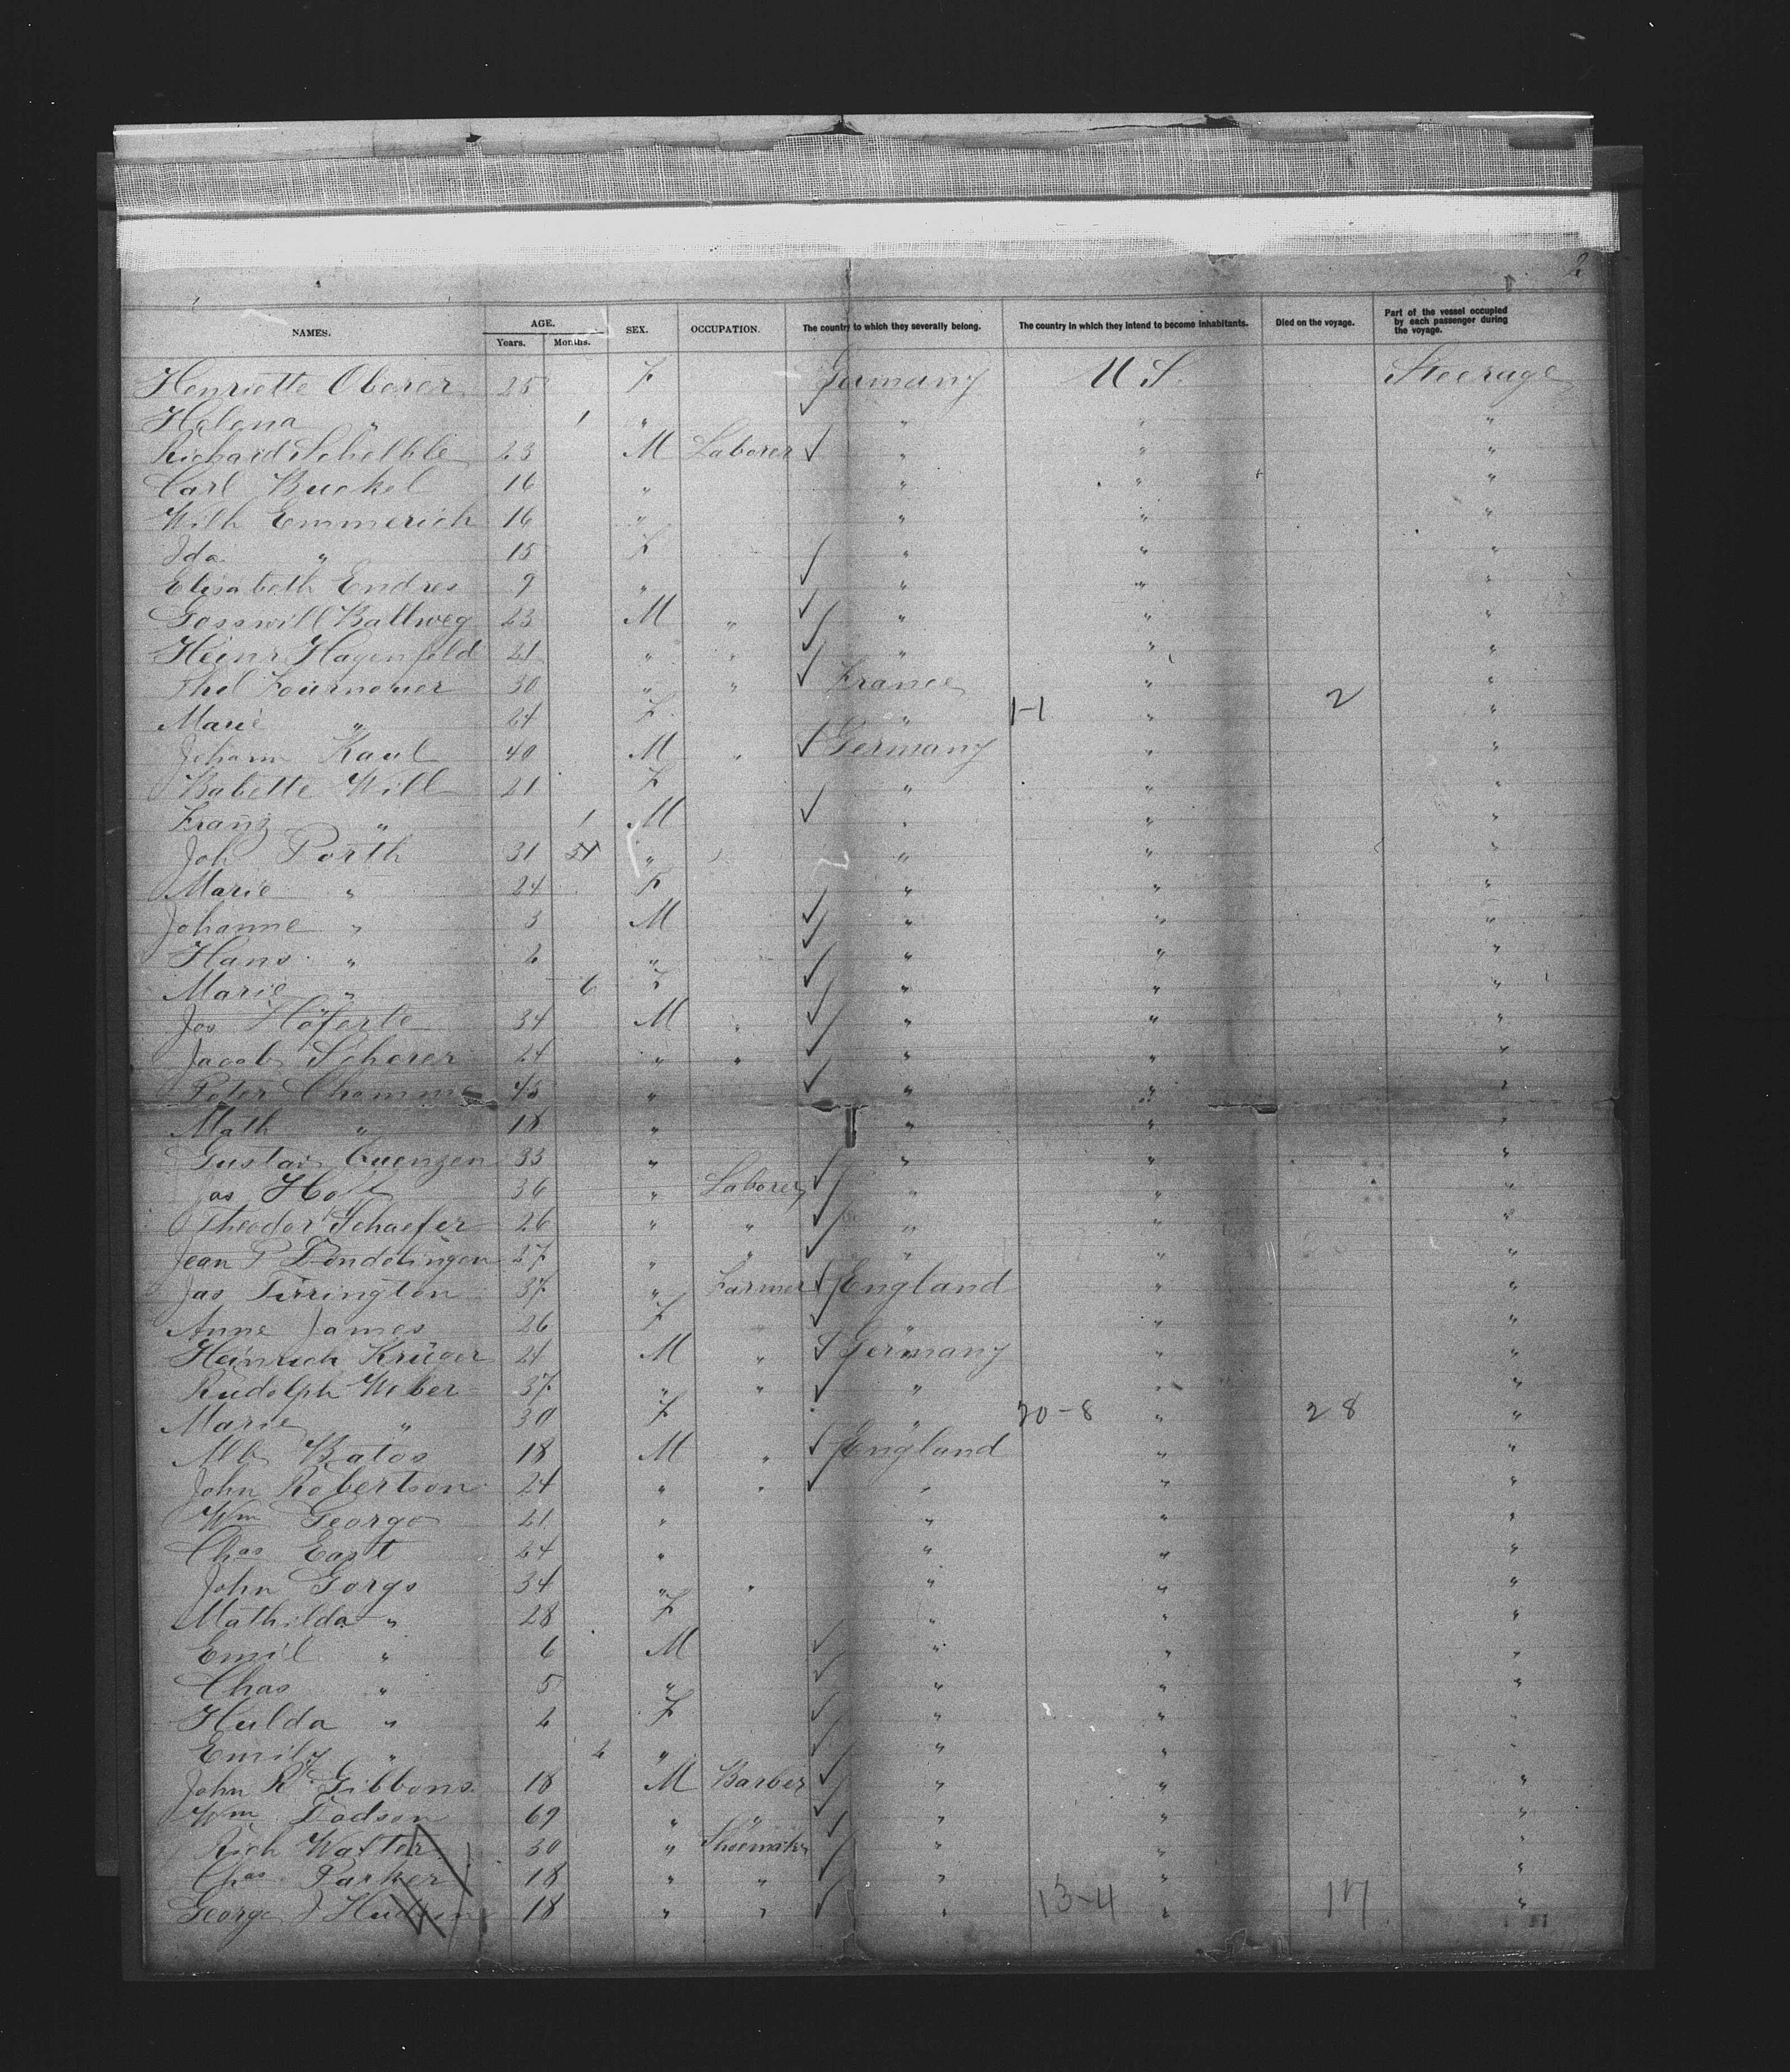 2
NAMES. AGE. Years. Months. SEX. OCCUPATION. The country to which they severally belong. The country in which they intend to become inhabitants. Died on the voyage. Part of the vessel occupied by each passenger during the voyage.
Henriette Oberer 25 F Germany U S. Steerage
Helena " 1 " " " "
Richard Schelkle 23 M Laborer " " "
Carl Buckel 16 " " " "
Wilh Emmerich 16 " " " "
Ida " 15 F " " "
Elisabeth Endres 9 " " " "
Gosswill Battweg 23 M " " " "
Heinr Hagenfeld 21 " " " " "
30 " " France " "
Marie " 24 F " 1-1 " 2 "
Johann Kaul 40 M " Germany " "
Babette Will 21 F " " "
Franz " 1 M " " "
Joh Porth 31 " " " "
Marie " 24 F " " "
Johanne " 3 M " " "
Hans " 2 " " " "
Marie " 6 F " " "
Jos Höferle 34 M " " " "
Jacob Scherer 24 " " " " "
Peter 43 " " " "
Math " 18 " " " "
Gustav Guenzen 33 " " " "
Jos 36 " Laborer " " "
Theodor Schaefer 26 " " " " "
Jean P Dendelingen 27 " " " " "
Jas Tirrington 37 " Farmer England " "
Anne James 26 F " " "
Heinrich Krüger 24 M " Germany " "
Rudolph Weber 37 " " " " "
Marie " 30 F " 20-8 " 28 "
Bates 18 M " England " "
John Robertson 24 " " " " "
Wm George 21 " " " "
Chas East 24 " " " "
John Gorgs 34 " " " " "
Mathilda " 28 F " " "
Emil " 6 M " " "
Chas " 5 " " " "
Hulda " 2 F " " "
Emily " 2 " " " "
John R Gibbons 18 M Barber " " "
Wm Dodson 69 " " " " "
Rich Walter 30 " Shoemaker " " "
Chas Parker 18 " " " " "
George J 18 " " " 13-4 " 17 "